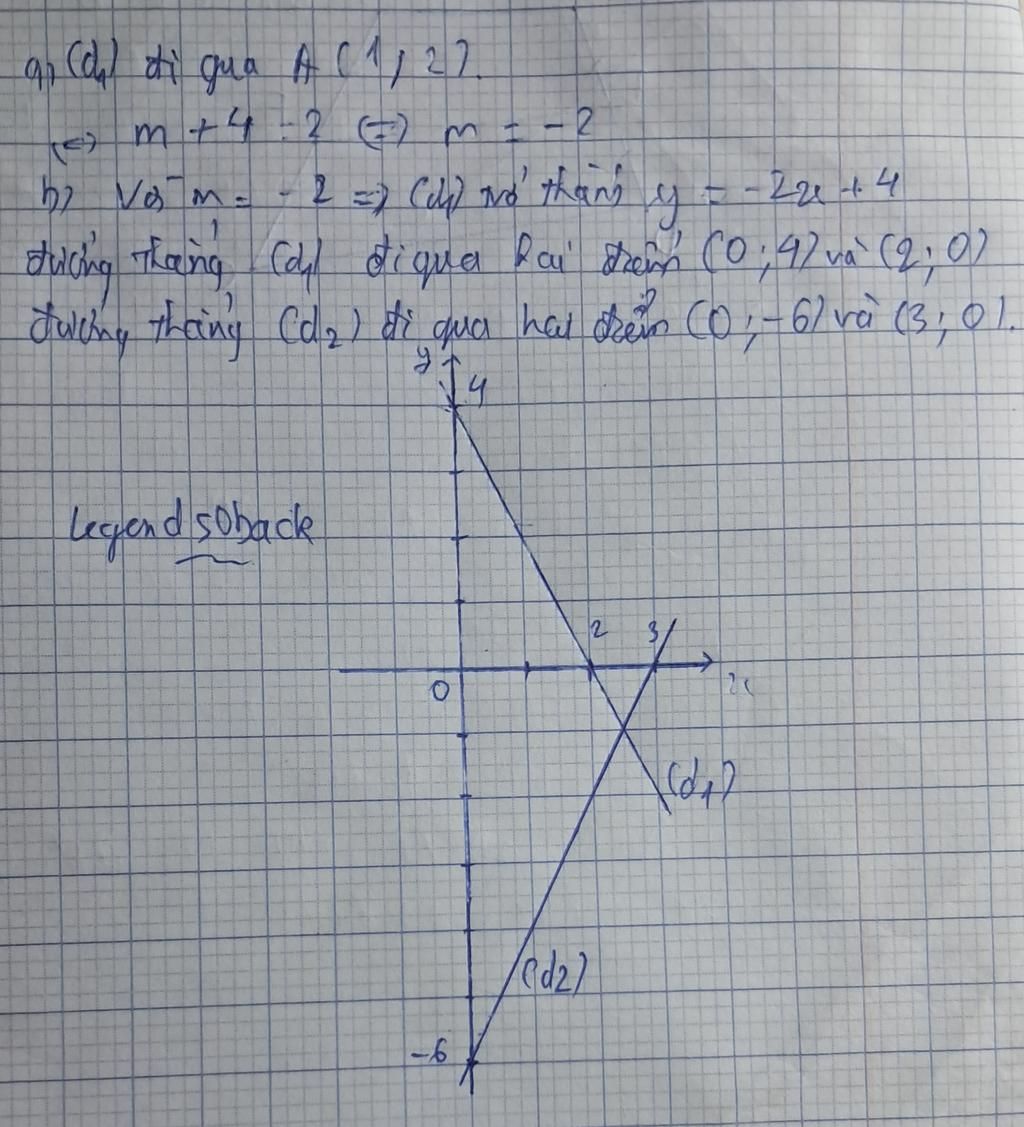 a, (d1) đi qua A (1; 2).
<=> m + 4 = 2 <=> m = -2
b) Với m = -2 => (d1) trở thành y = -2x + 4
đường thẳng (d1) đi qua hai điểm (0; 4) và (2; 0)
đường thẳng (d2) đi qua hai điểm (0; -6) và (3; 0).
y
4
Legend soback
2 3
0
x
(d1)
(d2)
-6